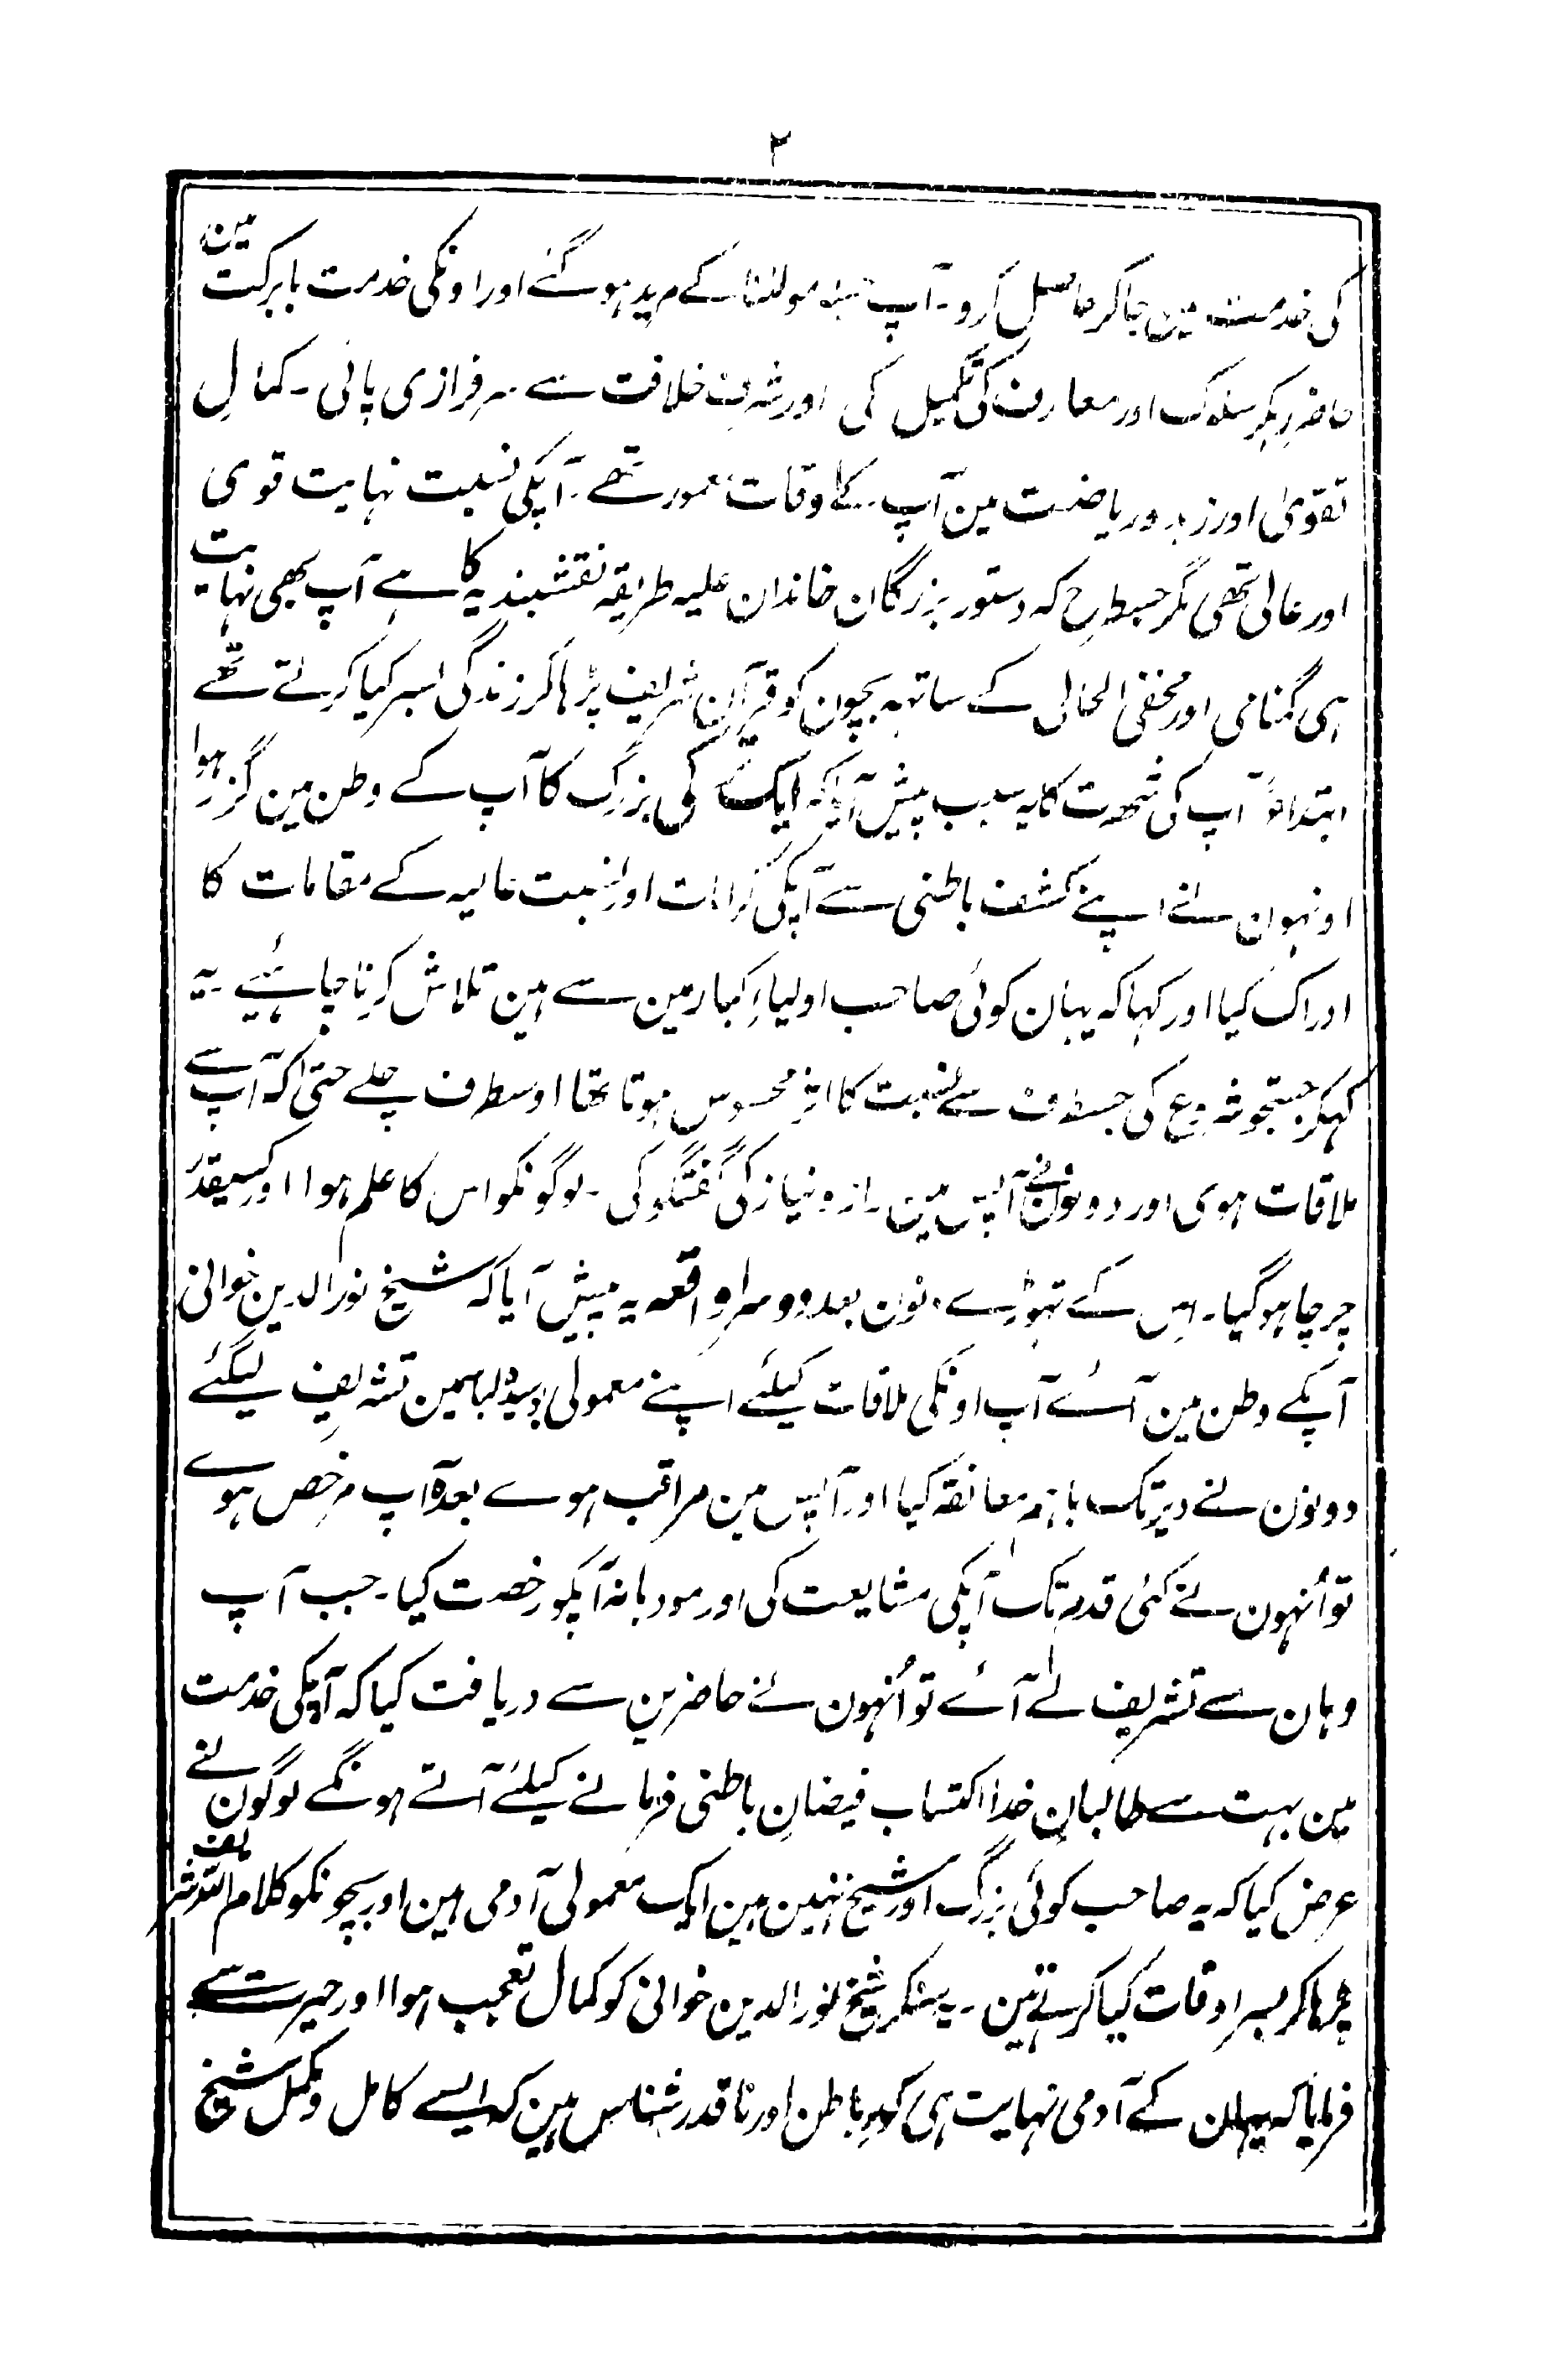 ۲
کی خدمت مین جاکر حاصل کرو۔ آپ مولنٰنا کے مرید ہوگئے اور اونکی خدمت بابرکت مین
حاضر رہکر سلوک اور معارف کی تکمیل کی اور شرف خلافت سے سرفرازی پائی۔ کمالِ
تقویٰ اور زہد و ریاضت مین آپ کے اوقات معمور تھے۔ آپکی نسبت نہایت قوی
اور عالی تھی مگر جسطرح کہ دستور بزرگان خاندان علیہ طریقہ نقشبندیہ کا ہے آپ بھی نہایت
ہی گمنامی اور مخفی الحالی کے ساتہہ بچون کو قرآن شریف پڑہاکر زندگی بسر کیا کرتے تھے
ابتداءً آپ کی شہرت کا یہ سبب پیش آیا کہ ایک کی بزرگ کا آپ کے وطن مین گزر ہوا
اونہون نے اپنے کشف باطنی سے آپکی کرامات اور نسبت عالیہ کے مقامات کا
ادراک کیا اور کہا کہ یہان کوئی صاحب اولیاء کبار مین سے ہین تلاش کرنا چاہئیے۔ یہ
کہکر جستجو شروع کی جسطرف سے نسبت کا اثر محسوس ہوتا تھا اوسطرف چلے حتیٰ کہ آپ سے
ملاقات ہوی اور دونون نے آپس مین راز و نیاز کی گفتگو کی۔ لوگونکو اس کا علم ہوا اور کسیقدر
چرچا ہوگیا۔ اس کے تہوڑے دنون بعد دوسرا واقعہ یہ پیش آیا کہ شیخ نورالدین خوانی
آپکے وطن مین آئے آپ اونکی ملاقات کیلئے اپنے معمولی بوسیدہ لباسمین تشریف لیگئے
دونون نے دیر تک باہم معانقہ کیا اور آپس مین مراقب ہوے بعدہٗ آپ مرخص ہوے
تو اُنہون نے کئی قدم تک آپکی مشایعت کی اور مودبانہ آپکو رخصت کیا۔ جب آپ
وہان سے تشریف لے آئے تو اُنہون نے حاضرین سے دریافت کیا کہ آپکی خدمت
مین بہت سے طالبانِ خدا اکتساب فیضانِ باطنی فرمانے کیلئے آتے ہونگے لوگون نے
عرض کیا کہ یہ صاحب کوئی بزرگ اور شیخ نہین ہین ایک معمولی آدمی ہین اور بچونکو کلام اللہ شریف
پڑہاکر بسر اوقات کیا کرتے ہین۔ یہ سنکر شیخ نورالدین خوانی کو کمال تعجب ہوا اور حیرت سے
فرمایا کہ یہان کے آدمی نہایت ہی کورِ باطن اور ناقدر شناس ہین کہ ایسے کامل و مکمل شیخ